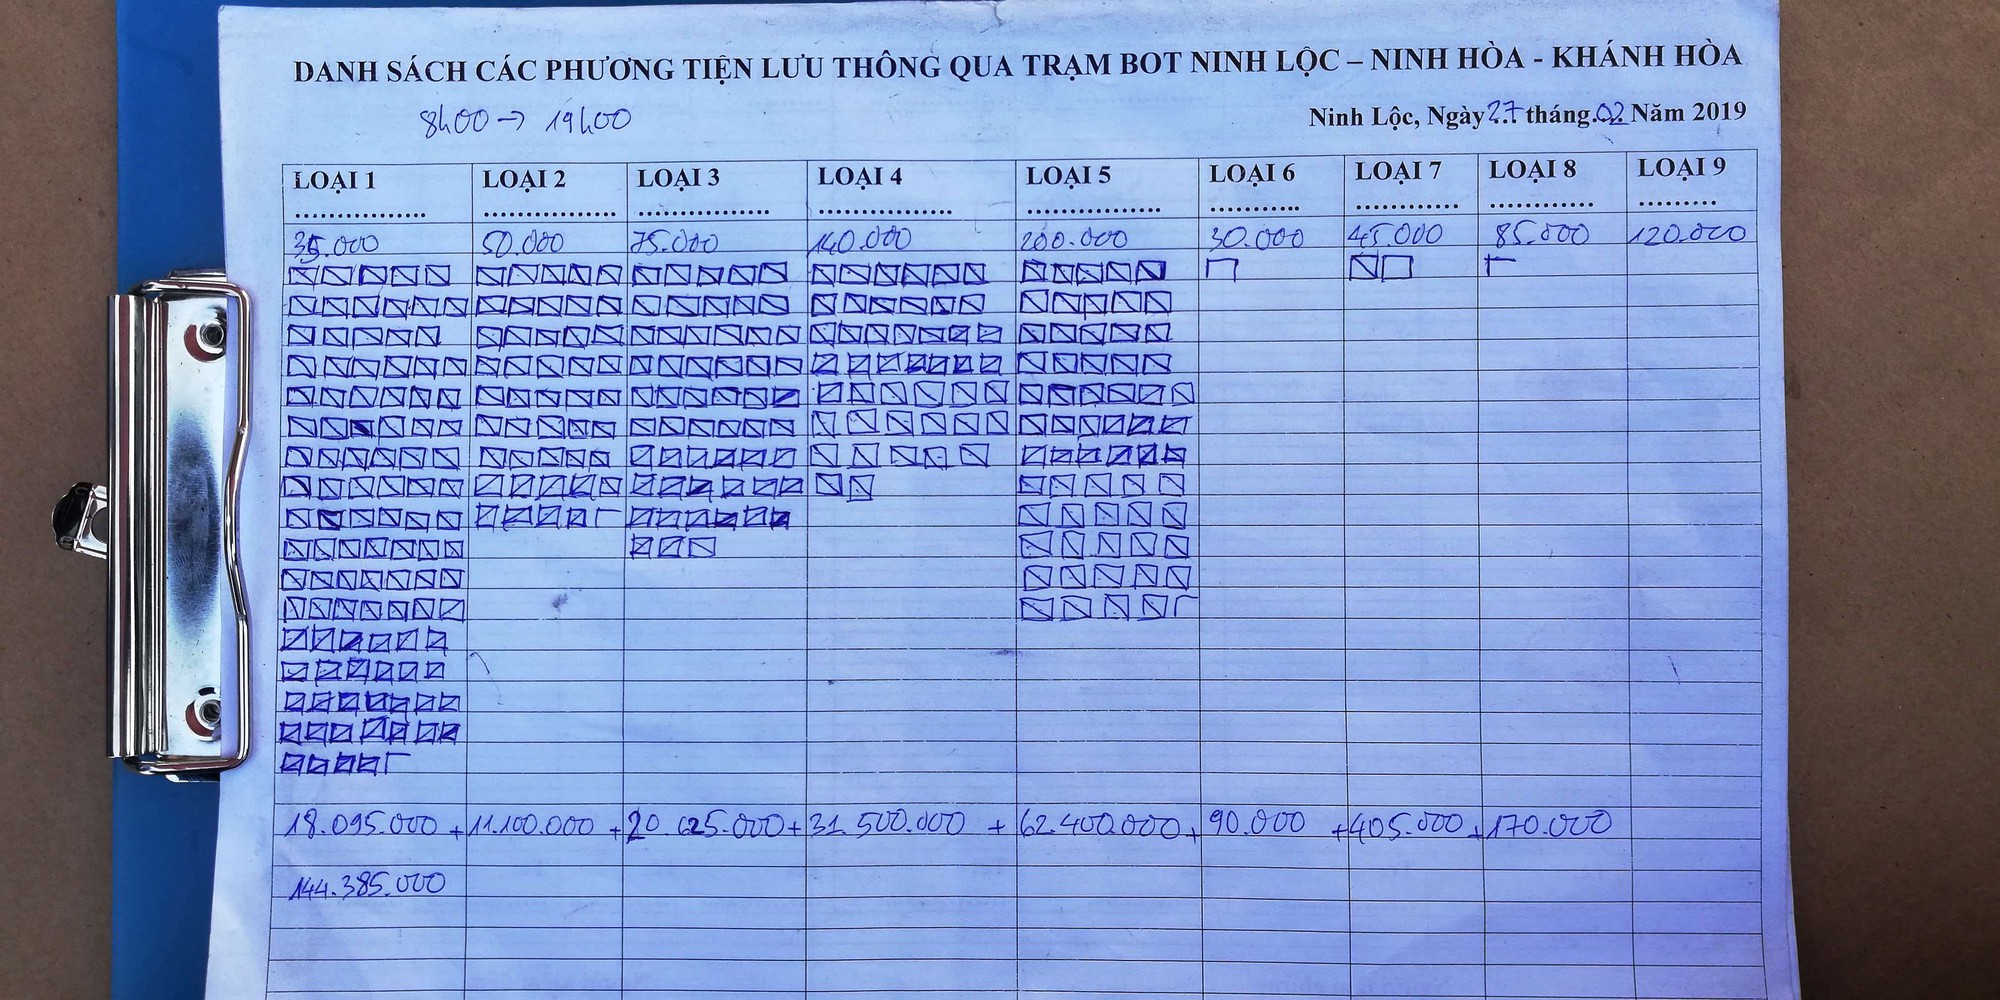 DANH SÁCH CÁC PHƯƠNG TIỆN LƯU THÔNG QUA TRẠM BOT NINH LỘC – NINH HÒA - KHÁNH HÒA
8h00 → 19h00
Ninh Lộc, Ngày 27 tháng 02 Năm 2019
LOẠI 1 LOẠI 2 LOẠI 3 LOẠI 4 LOẠI 5 LOẠI 6 LOẠI 7 LOẠI 8 LOẠI 9
35.000 50.000 75.000 140.000 200.000 30.000 45.000 85.000 120.000
18.095.000 + 11.100.000 + 20.625.000 + 31.500.000 + 62.400.000 + 90.000 + 405.000 + 170.000
144.385.000